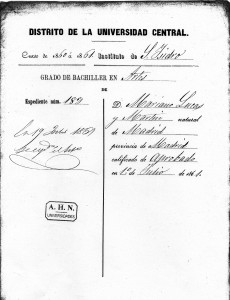 DISTRITO DE LA UNIVERSIDAD CENTRAL.
Curso de 1860 á 1861. Instituto de S. Isidro
GRADO DE BACHILLER EN Artes
DE
Expediente núm. 189
D. Mariano Lucas
y Martin natural
de Madrid
provincia de Madrid
calificado de Aprobado
en 1º de Julio de 1861.
A. H. N.
UNIVERSIDADES